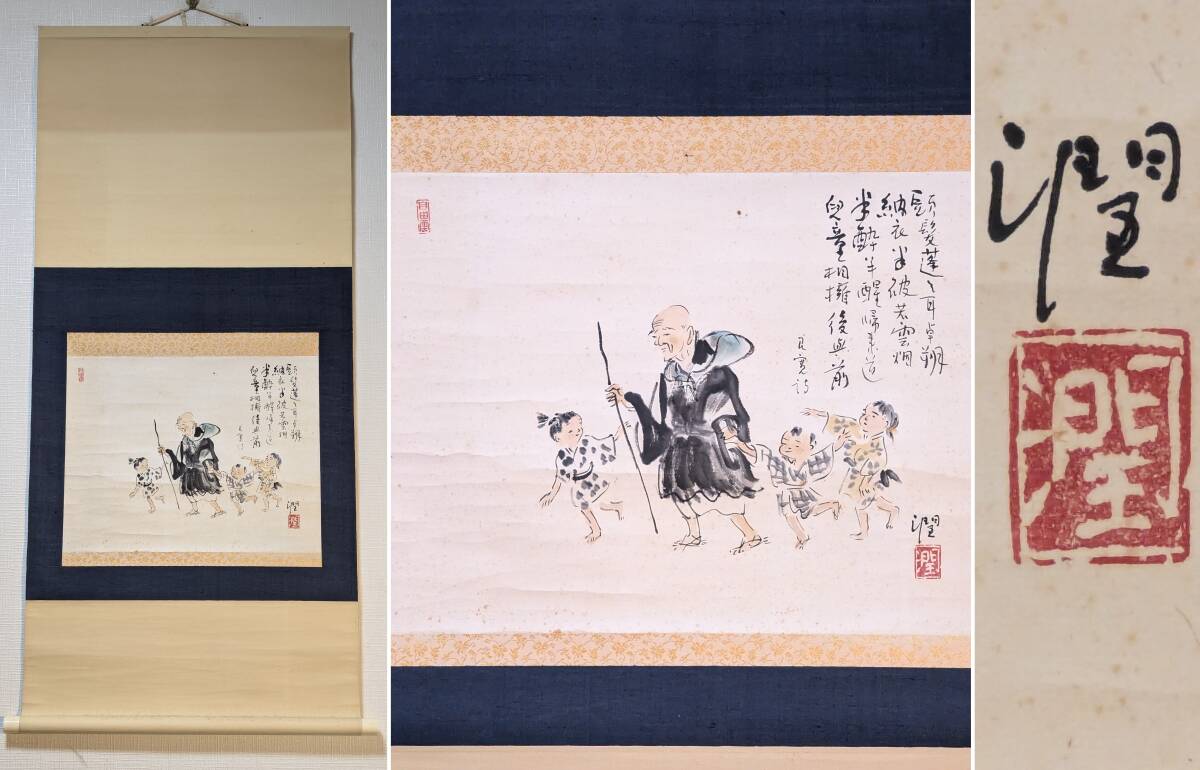 頭髪蓬々耳卓朔
納衣半破若雲烟
半酔半醒帰来道
兒童相擁後與前
良寛詩
潤
潤
潤
潤